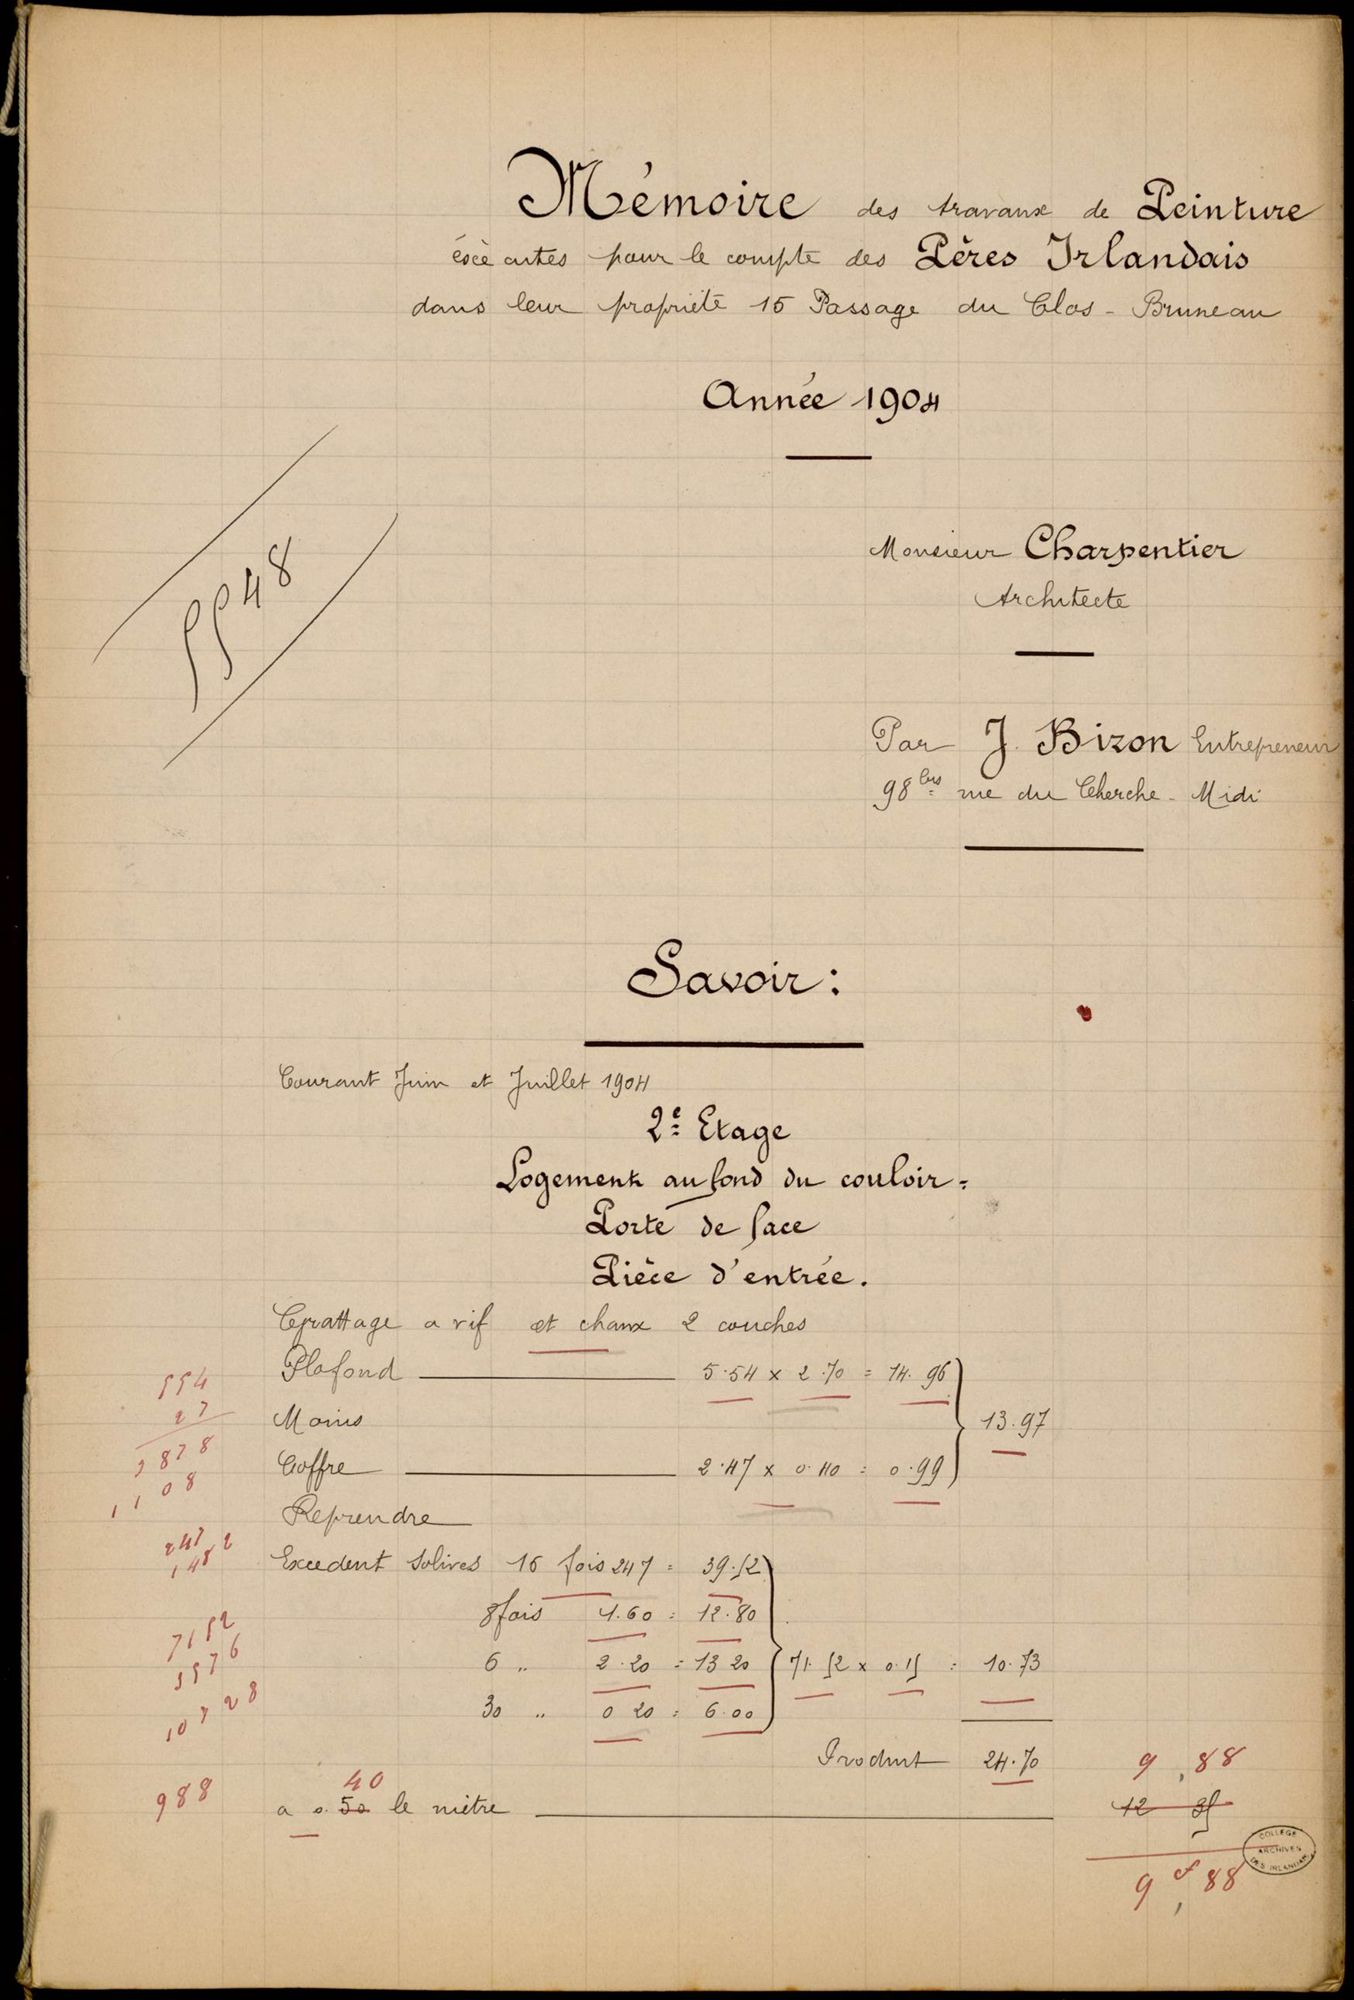 Mémoire des travaux de Peinture
éxècutés pour le compte des Pères Irlandais
dans leur propriété 15 Passage du Clos - Bruneau
Année 1904
5548
Monsieur Charpentier
Architecte
Par J. Bizon Entrepreneur
98 bis rue du Cherche - Midi
Savoir :
Courant Juin et Juillet 1904
2e Etage
Logement au fond du couloir =
Porte de face
Pièce d'entrée.
Grattage a vif et chaux 2 couches
554 Plafond 5.54 x 2.70 = 14.96
27 Moins 13.97
3878
Coffre 2.47 x 0.40 = 0.99
1108
Reprendre
247 2
148
Excedent solives 16 fois 247 = 39.52
7152 8 fois 1.60 = 12.80
3576 6 " 2.20 = 13 20 71.52 x 0.15 = 10.73
10728 30 " 0 20 = 6.00
Produit 24.70 9,88
40
988 a 0.50 le mètre 12 35
COLLEGE ARCHIVES DES IRLANDAIS
9f,88